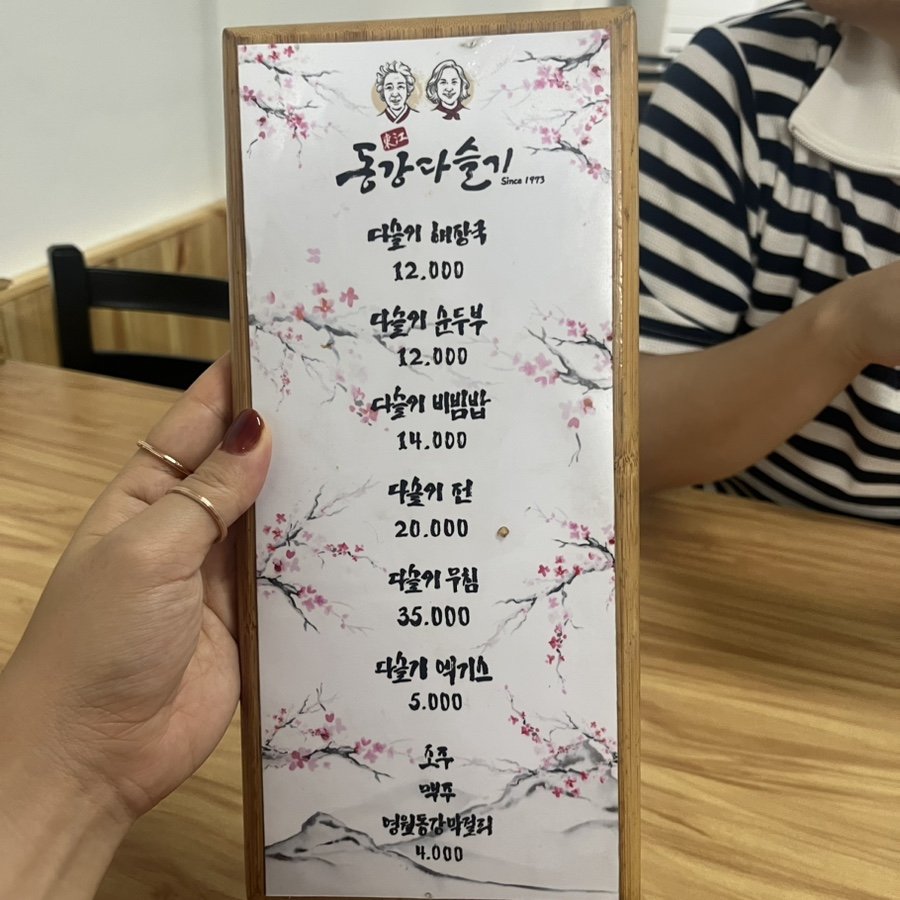 東江
동강다슬기
Since 1973
다슬기 해장국
12.000
다슬기 순두부
12.000
다슬기 비빔밥
14.000
다슬기 전
20.000
다슬기 무침
35.000
다슬기 엑기스
5.000
소주
맥주
영월동강막걸리
4.000